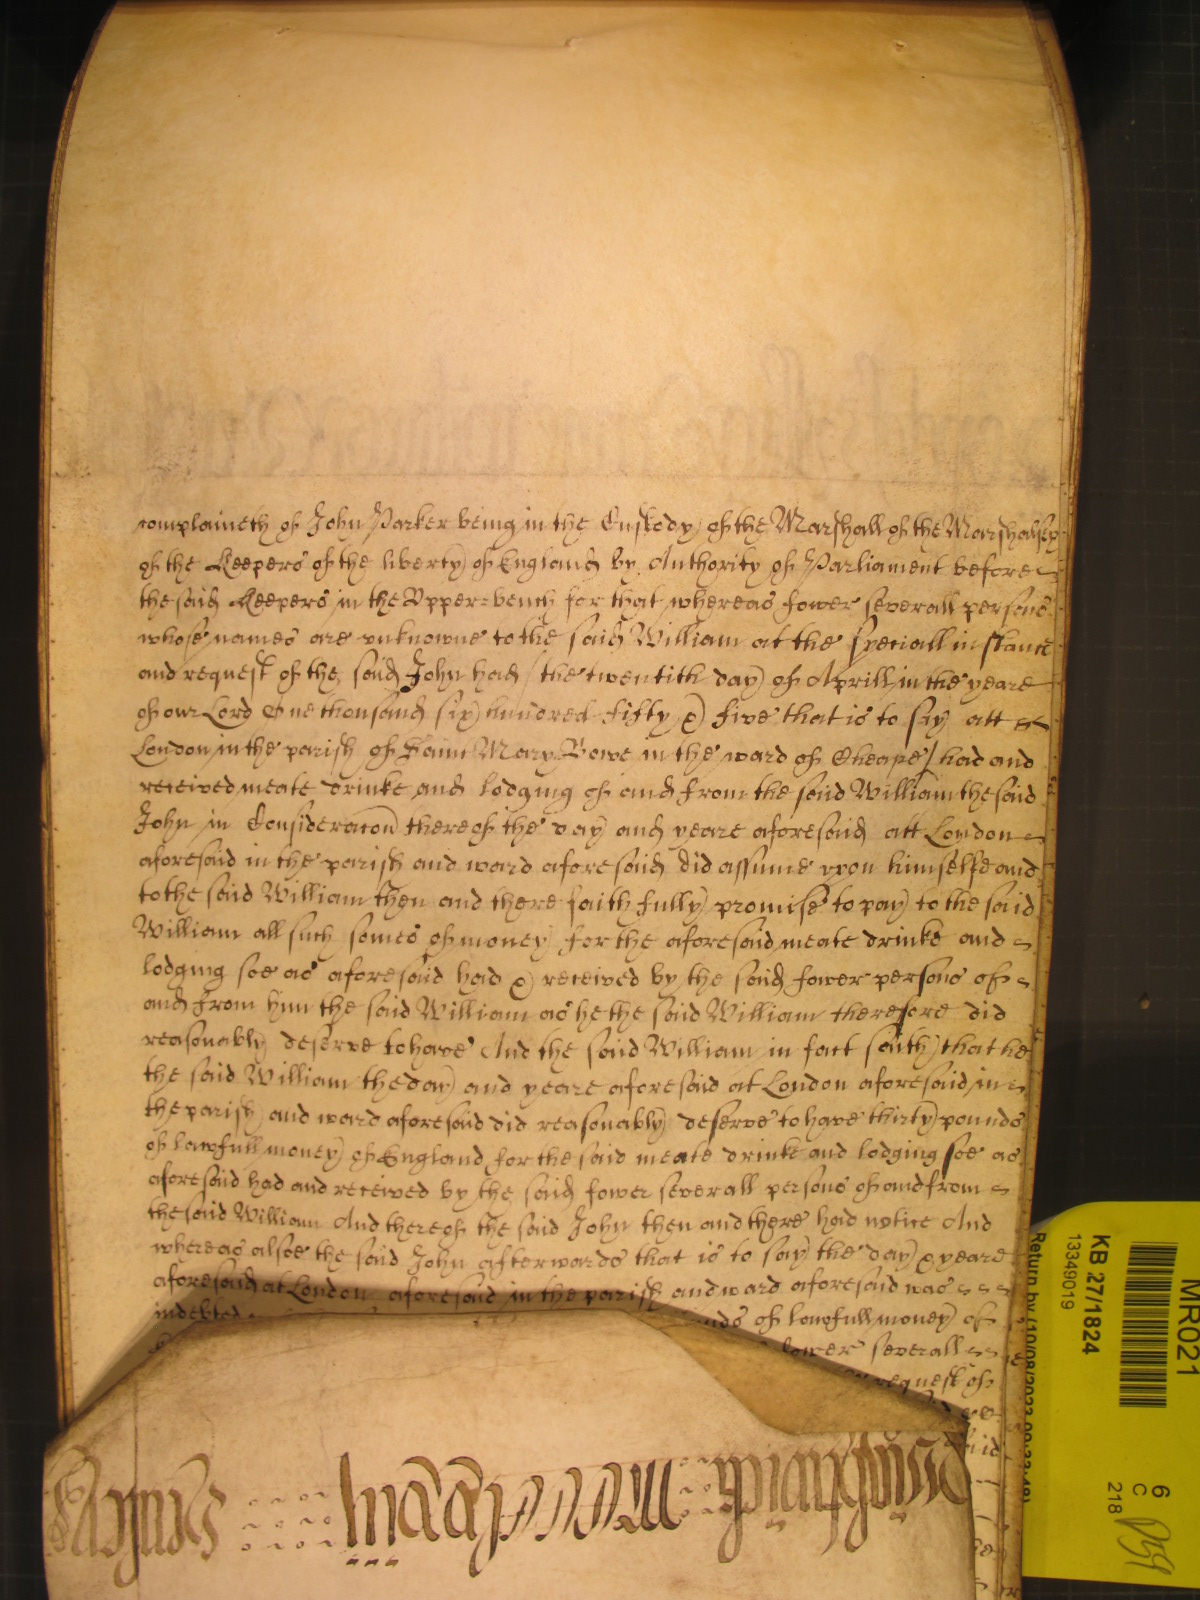 complaineth of John Parker being in the Custody of the Marshall of the Marshalsey
of the Keepers of the liberty of England by Authority of Parliament before
the said Keepers in the Upper=bench for that whereas fower severall persons
whose names are unknowne to the said William at the speciall instance
and request of the said John had / the twentith day of Aprill in the yeare
of our Lord One thousand six hundred fifty & five that is to say att
London in the parish of Saint Mary Bowe in the ward of Cheape / had and
received meate drinke and lodging of and from the said William the said
John in Consideracon thereof the day and yeare aforesaid att London
aforesaid in the parish and ward aforesaid did assume upon himselfe and
to the said William then and there faithfully promise to pay to the said
William all such somes of money for the aforesaid meate drinke and
lodging soe as aforesaid had & received by the said fower persons of
and from him the said William as he the said William therefore did
reasonably deserve to have And the said William in fact saith that he
the said William the day and yeare aforesaid at London aforesaid in
the parish and ward aforesaid did reasonably deserve to have thirty pounds
of lawfull money of England for the said meate drinke and lodging soe as
aforesaid had and received by the said fower severall persons of and from
the said William And thereof the said John then and there had notice And
whereas alsoe the said John afterwards that is to say the day & yeare
aforesaid at London aforesaid in the parish and ward aforesaid was
indebted of lawfull money of
fower severall
request of
said
MR021
KB 27/1824
13349019
6
C
218